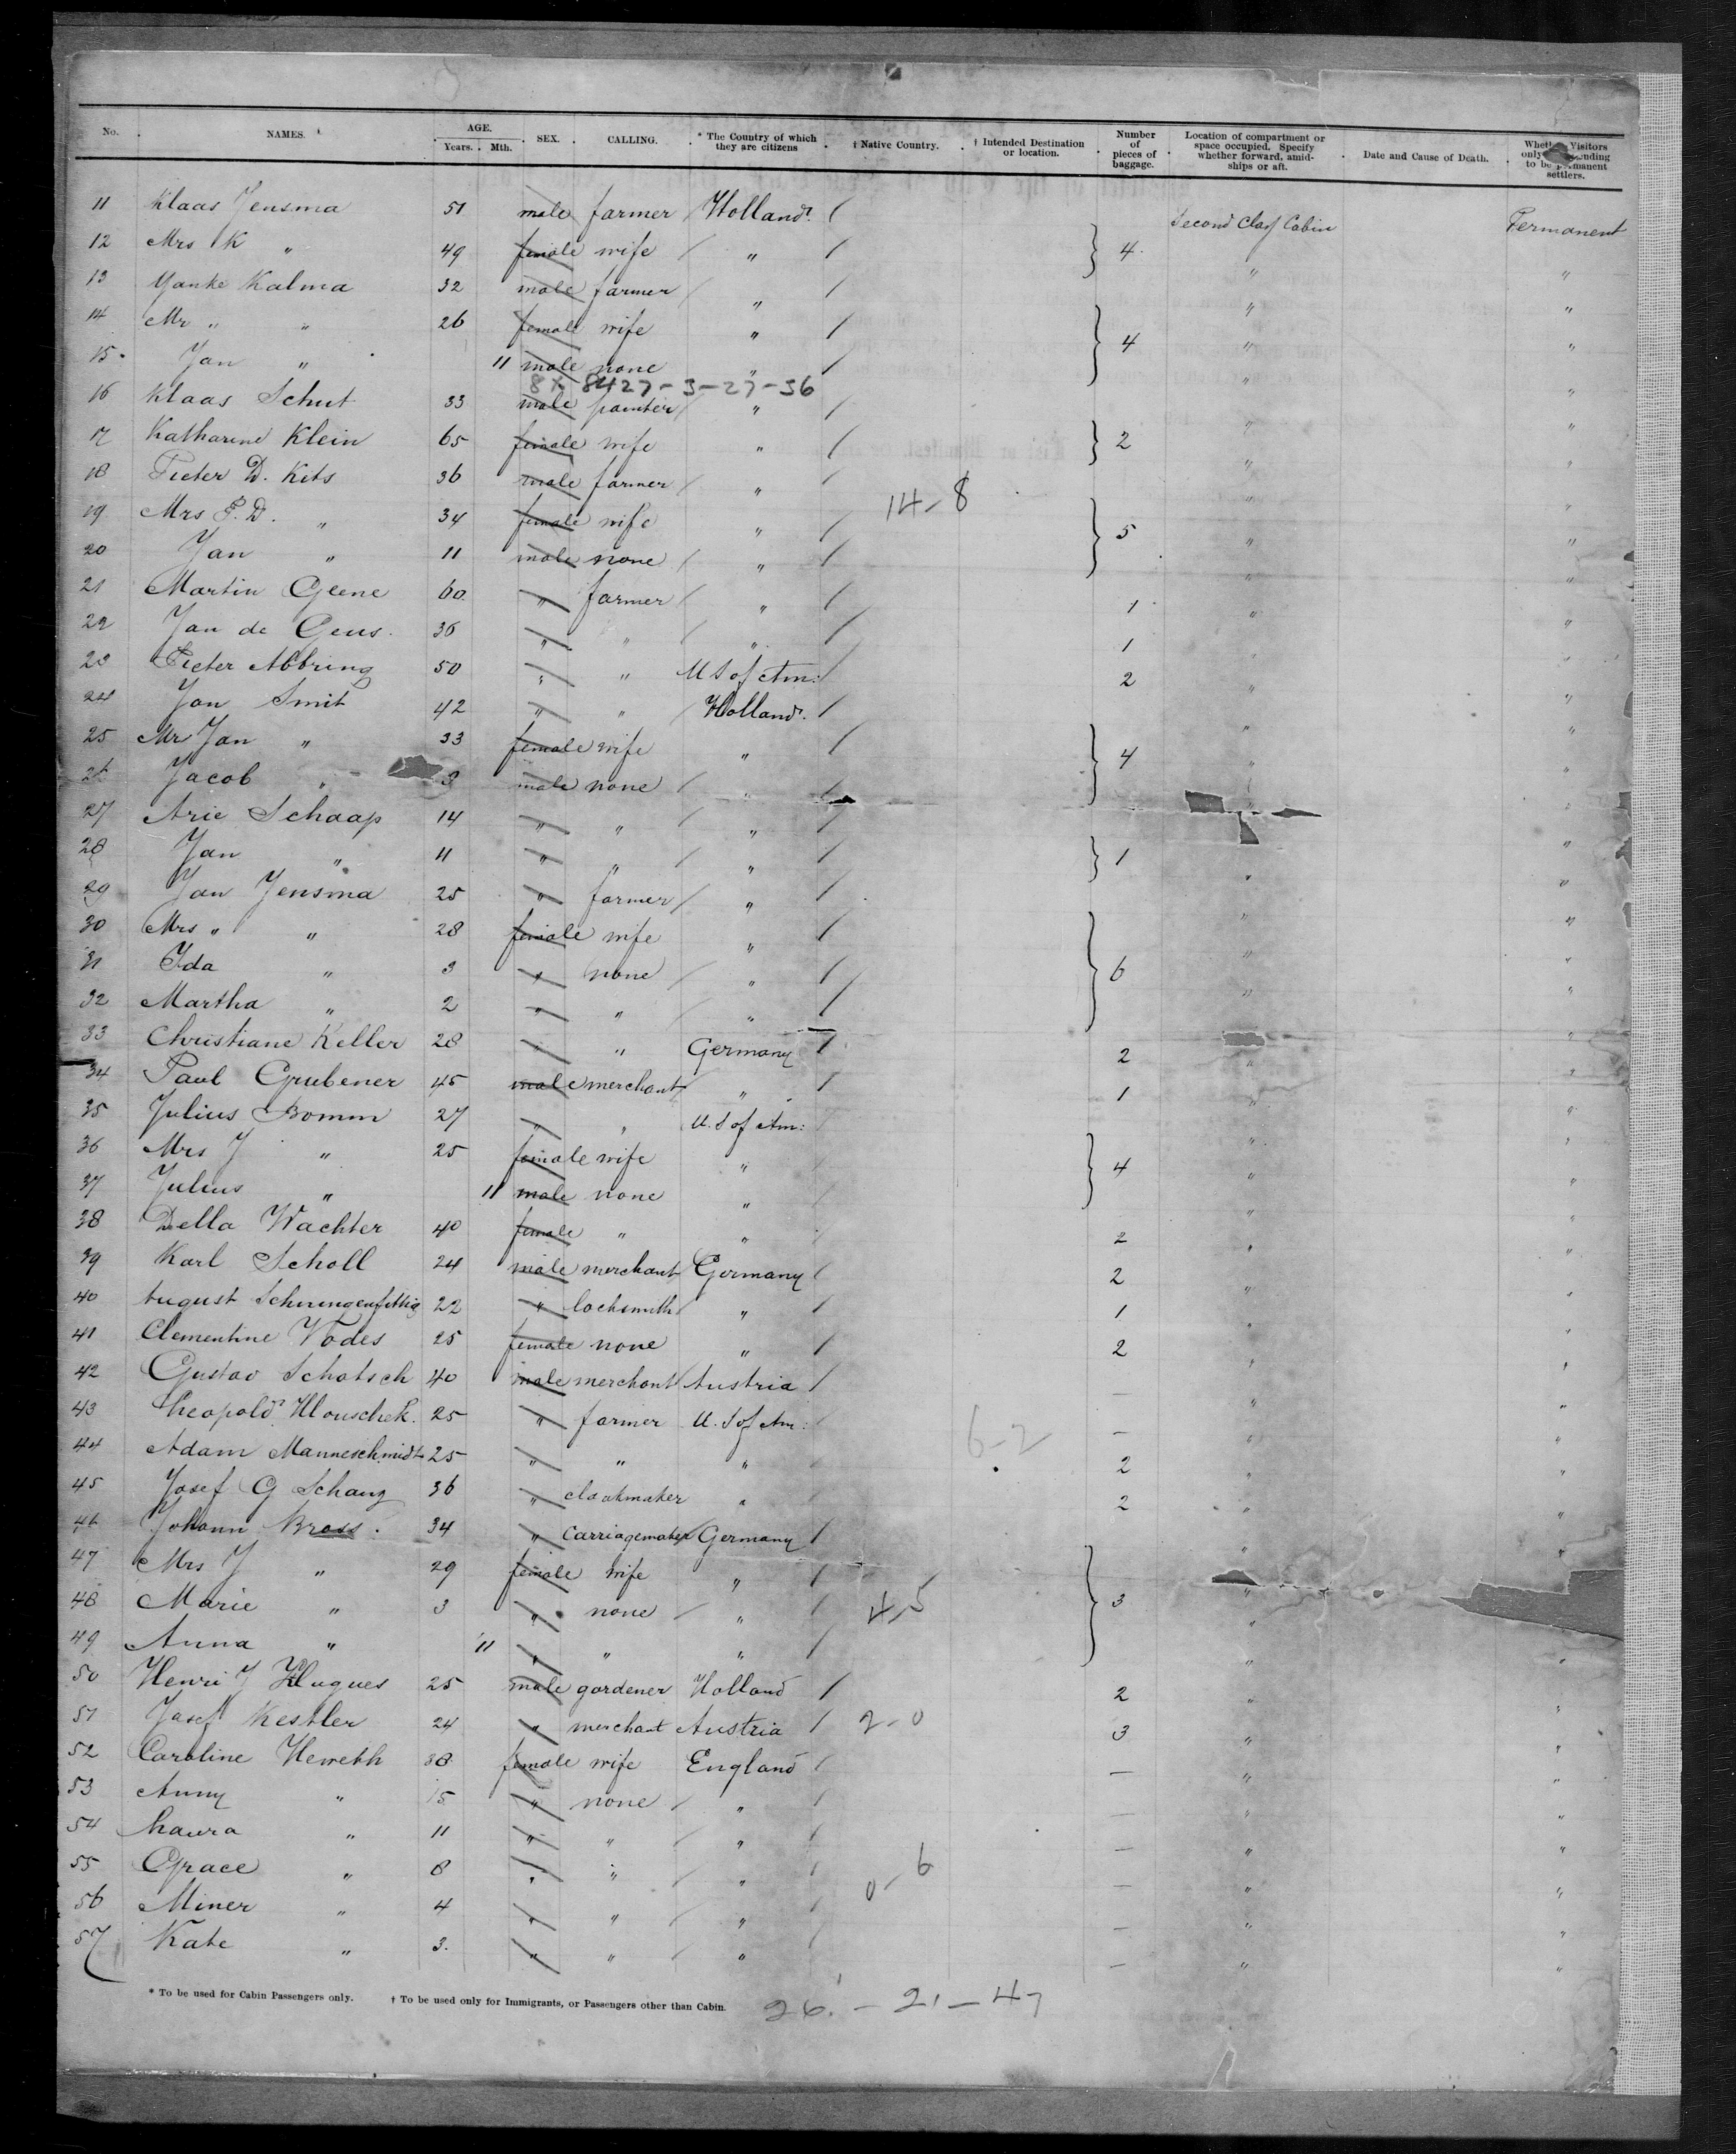 No. NAMES. AGE. Years. Mth. SEX. CALLING. * The Country of which they are citizens † Native Country. † Intended Destination or location. Number of pieces of baggage. Location of compartment or space occupied. Specify whether forward, amidships or aft. Date and Cause of Death. Visitors only to be permanent settlers.
11 Klaas Jensma 51 male farmer Holland Second Class Cabin Permanent
12 Mrs K " 49 female wife " 4 " "
13 Yanke Kalma 32 male farmer " " "
14 Mr " " 26 female wife " 4 " "
15 Jan " 11 male none " " "
8X 8427-3-27-36
16 Klaas Schut 33 male painter " " "
17 Katharine Klein 65 female wife " 2 " "
18 Pieter D. Kits 36 male farmer " 14-8 " "
19 Mrs P. D. " 34 female wife " 5 " "
20 Jan " 11 male none " " "
21 Martin Geene 60 " farmer " 1 " "
22 Jan de Geus 36 " " " 1 "
23 Pieter Abbring 50 " " U S of Am: 2 " "
24 Jan Smit 42 " " Holland " "
25 Mr Jan " 33 female wife " 4 " "
26 Jacob " 3 male none " " "
27 Arie Schaap 14 " " " "
28 Jan " 11 " " " 1 " "
29 Jan Jensma 25 " farmer " " "
30 Mrs " " 28 female wife " " "
31 Ida " 3 " none " 6 " "
32 Martha " 2 " " " " "
33 Christiane Keller 28 " " Germany 2 " "
34 Paul Grubener 45 male merchant " 1 " "
35 Julius Bomm 27 " " U. S of Am: " "
36 Mrs J " 25 female wife " 4 " "
37 Julius " 11 male none " " "
38 Della Wachter 40 female " " 2 " "
39 Karl Scholl 24 male merchant Germany 2 " "
40 August 22 " locksmith " 1 " "
41 Clementine Vodes 25 female none " 2 " "
42 Gustav Schatsch 40 male merchant Austria — " "
43 Leopold 25 " farmer U. S of Am: — " "
44 Adam Manneschmidt 25 " " " 6-2 2 " "
45 Josef G Schang 36 " cloakmaker " 2 " "
46 Johann Brass. 34 " carriagemaker Germany " "
47 Mrs J " 29 female wife " "
48 Marie " 3 " none " 4-5 3 "
49 Anna " 11 " " " " "
50 Henri J Hugues 25 male gardener Holland 2 " "
51 Josef Kestler 24 " merchant Austria 2-0 3 " "
52 Caroline Heweth 38 female wife England — " "
53 Anny " 15 " none " — " "
54 Laura " 11 " " " — " "
55 Grace " 8 " " " 0-6 — " "
56 Miner " 4 " " " — " "
57 Kate " 3. " " " — " "
* To be used for Cabin Passengers only. † To be used only for Immigrants, or Passengers other than Cabin. 26. - 21 - 47